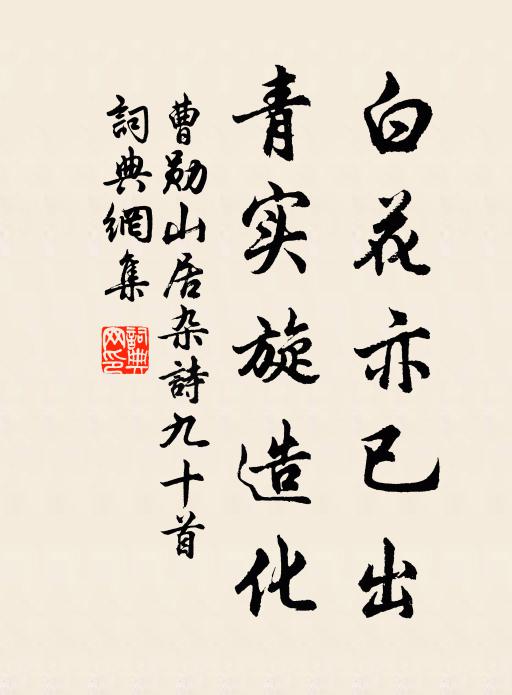 白花亦已出
青实旋造化
曹勛山居杂詩九十首
詞典網集
詞典网印